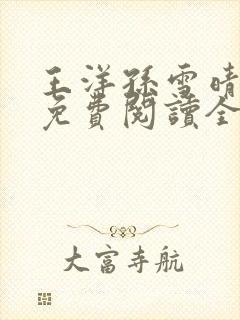 王洋孫雪晴
免費閱讀全
大富寺航